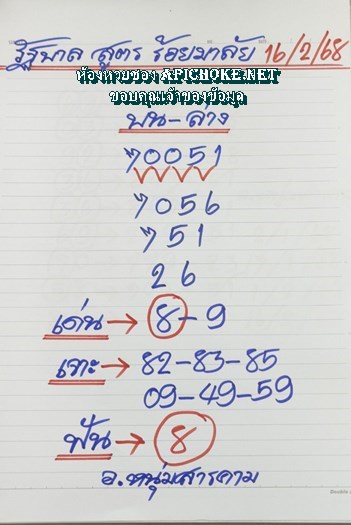 รัฐบาล สูตร ร้อยมาลัย 16/2/68
ห้องหวยซอง APICHOKE.NET
ขอบคุณเจ้าของข้อมูล
บน-ล่าง
70051
7056
751
26
เด่น → 8-9
เจาะ → 82-83-85
09-49-59
ฟัน → 8
อ.หนุ่มสารคาม